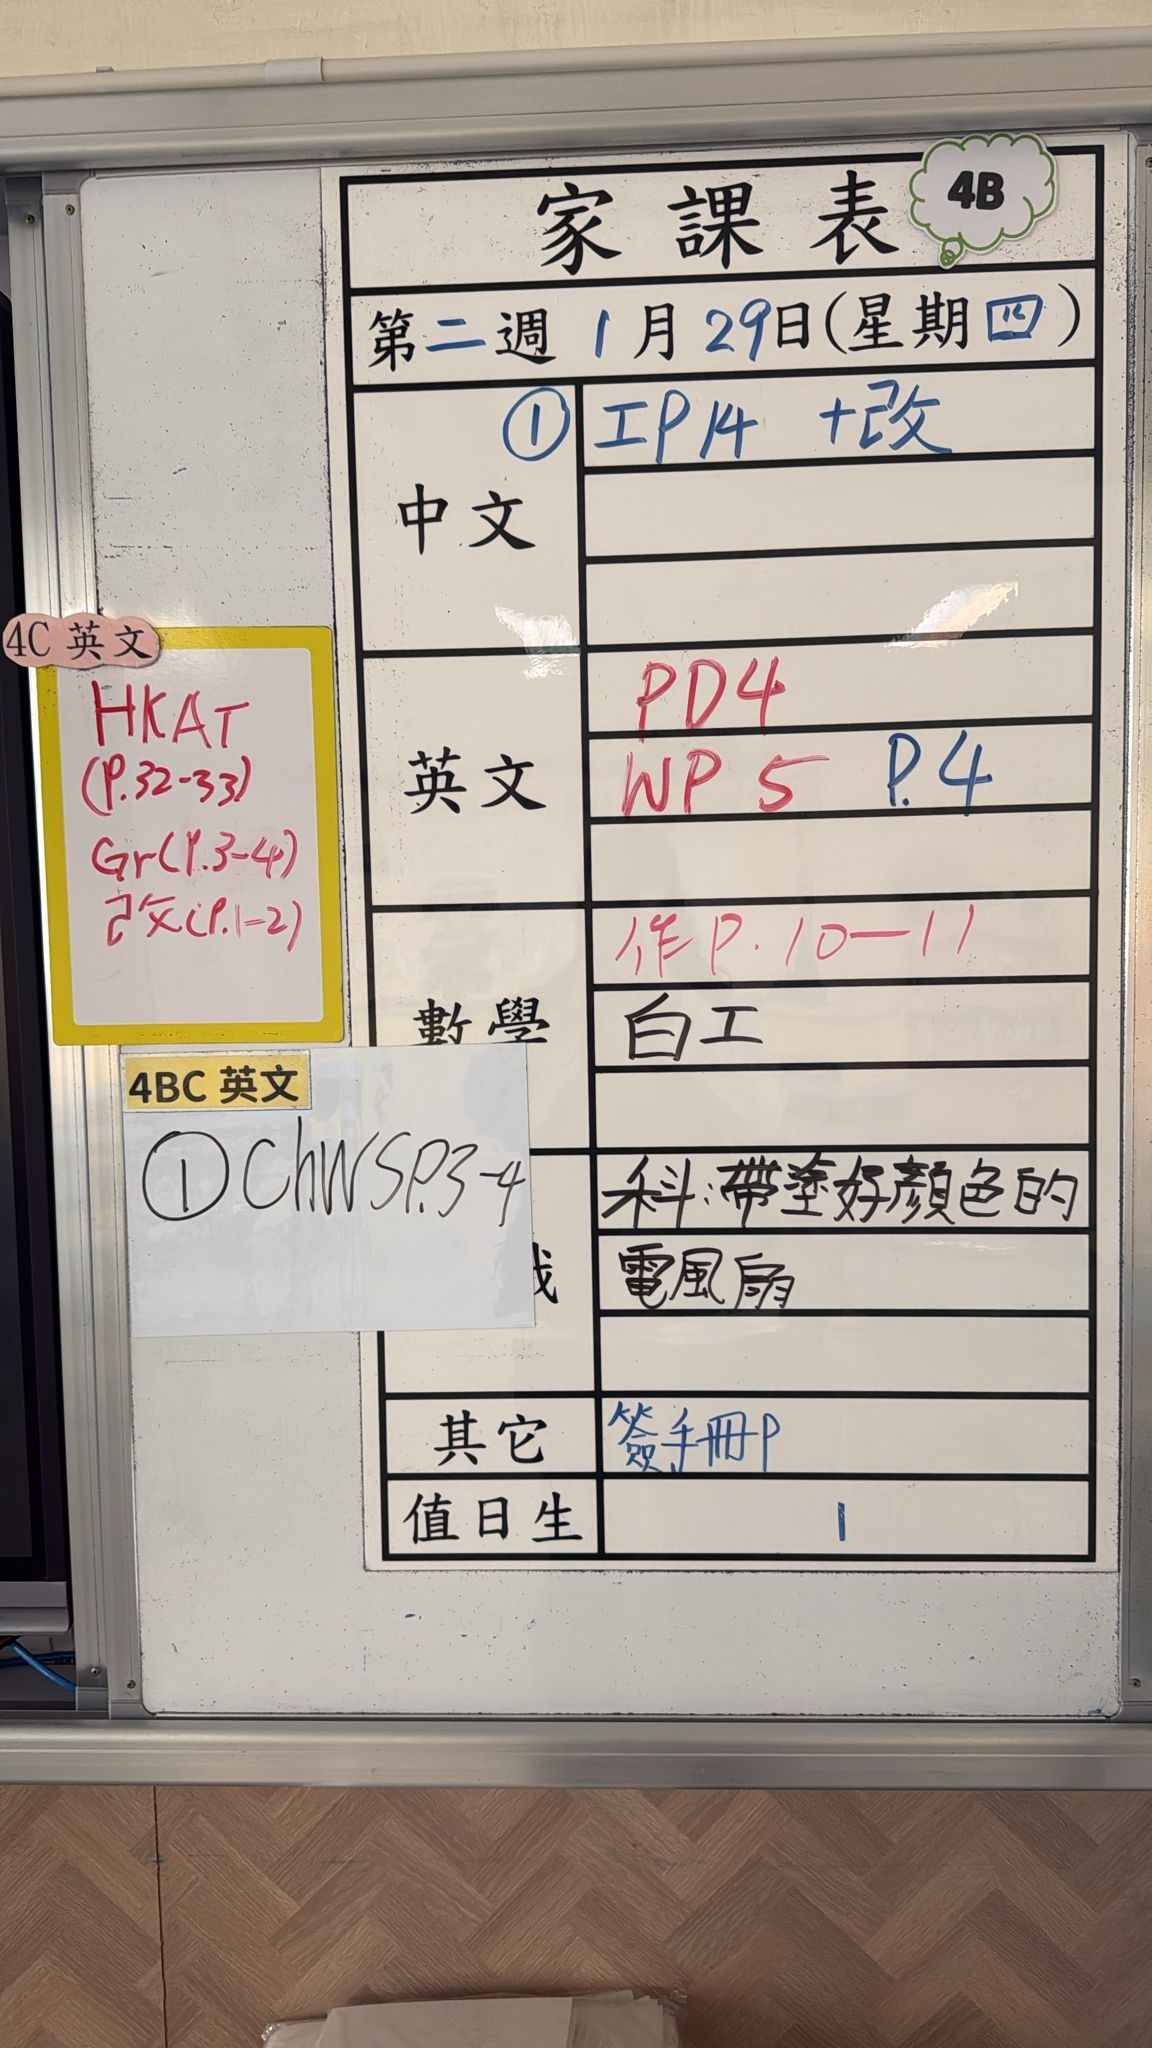 家課表
4B
第二週 1月29日(星期四)
中文
① 工P14 +改
英文
PD4
WP 5 P.4
數學
作P.10-11
白工
科:帶塗好顏色的
電風扇
其它
簽手冊P
值日生
1
4C 英文
HKAT
(P.32-33)
Gr(P.3-4)
改(P.1-2)
4BC 英文
① ChWSP.3-4